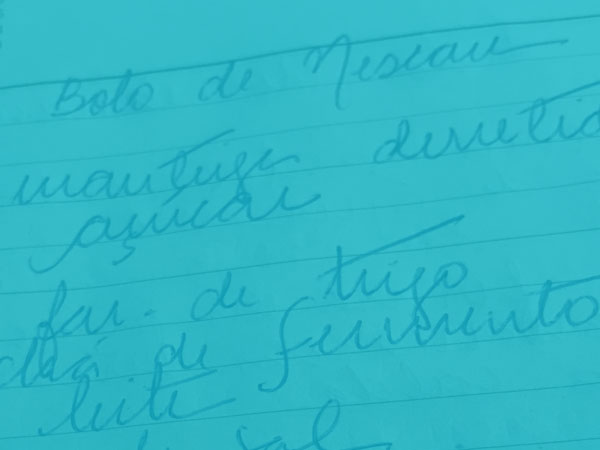 Bolo de Nescau
manteiga derretid
açúcar
far. de trigo
chá de fermento
leite
sal